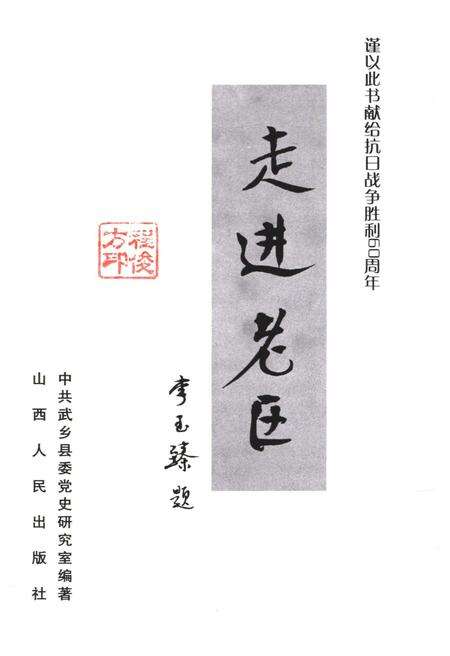 谨以此书献给抗日战争胜利60周年
走进老区
李玉臻题
程俊方印
中共武乡县委党史研究室编著
山西人民出版社